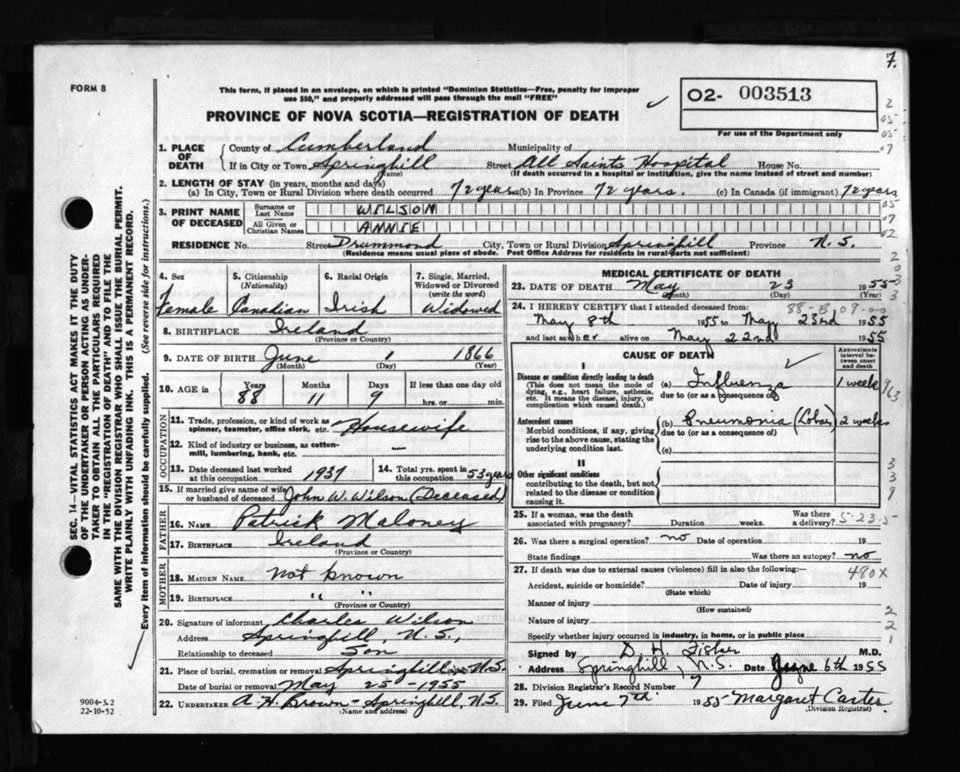 7.
FORM 8
This form, if placed in an envelope, on which is printed "Dominion Statistics—Free, penalty for improper
use $50," and properly addressed will pass through the mail "FREE"
O2- 003513
For use of the Department only
PROVINCE OF NOVA SCOTIA—REGISTRATION OF DEATH
1. PLACE OF DEATH
County of Cumberland Municipality of
If in City or Town Springhill Street All Saints Hospital House No.
(Name) (If death occurred in a hospital or institution, give the name instead of street and number)
2. LENGTH OF STAY (in years, months and days)
(a) In City, Town or Rural Division where death occurred 72 years (b) In Province 72 years. (c) In Canada (if immigrant) 72 years
3. PRINT NAME OF DECEASED
Surname or Last Name WILSON
All Given or Christian Names ANNIE
RESIDENCE No. Street Drummond City, Town or Rural Division Springhill Province N.S.
(Residence means usual place of abode. Post Office Address for residents in rural parts not sufficient)
4. Sex
Female
5. Citizenship (Nationality)
Canadian
6. Racial Origin
Irish
7. Single, Married, Widowed or Divorced (write the word)
Widowed
8. BIRTHPLACE Ireland
(Province or Country)
9. DATE OF BIRTH June 1 1866
(Month) (Day) (Year)
10. AGE in Years 88 Months 11 Days 9 If less than one day old
hrs. or min.
OCCUPATION
11. Trade, profession, or kind of work as
spinner, teamster, office clerk, etc. Housewife
12. Kind of industry or business, as cotton-
mill, lumbering, bank, etc. —
13. Date deceased last worked
at this occupation 1937
14. Total yrs. spent in
this occupation 53 years
15. If married give name of wife
or husband of deceased John W. Wilson (Deceased)
FATHER
16. NAME Patrick Maloney
17. BIRTHPLACE Ireland
(Province or Country)
MOTHER
18. MAIDEN NAME Not known
19. BIRTHPLACE " "
(Province or Country)
20. Signature of informant Charles Wilson
Address Springhill, N.S.,
Relationship to deceased Son
21. Place of burial, cremation or removal Springhill N.S.
Date of burial or removal May 25-1955
22. UNDERTAKER A. H. Brown - Springhill, N.S.
(Name and address)
MEDICAL CERTIFICATE OF DEATH
23. DATE OF DEATH May 23 1955
(Month) (Day) (Year)
24. I HEREBY CERTIFY that I attended deceased from
May 8th 1955 to May 23rd 1955
and last saw her alive on May 22nd 1955
CAUSE OF DEATH
Approximate interval between onset and death
I
Disease or condition directly leading to death
(This does not mean the mode of dying, e.g., heart failure, asthenia, etc. It means the disease, injury, or complication which caused death.)
(a) Influenza 1 week
due to (or as a consequence of)
Antecedent causes
Morbid conditions, if any, giving rise to the above cause, stating the underlying condition last.
(b) Pneumonia (Lobar) 2 weeks
due to (or as a consequence of)
(c)
II
Other significant conditions
contributing to the death, but not related to the disease or condition causing it.
25. If a woman, was the death
associated with pregnancy? Duration weeks. Was there a delivery? 5-23-5
26. Was there a surgical operation? no Date of operation 19
State findings Was there an autopsy? no
27. If death was due to external causes (violence) fill in also the following: 480X
Accident, suicide or homicide? Date of injury 19
(State which)
Manner of injury
(How sustained)
Nature of injury
Specify whether injury occurred in industry, in home, or in public place
Signed by D. H. Fisher M.D.
Address Springhill, N.S. Date June 6th 1955
28. Division Registrar's Record Number 7
29. Filed June 7th 1955 Margaret Carter
(Division Registrar)
SEC. 14—VITAL STATISTICS ACT MAKES IT THE DUTY
OF THE UNDERTAKER OR PERSON ACTING AS UNDER-
TAKER TO OBTAIN ALL THE PARTICULARS REQUIRED
IN THE "REGISTRATION OF DEATH" AND TO FILE THE
SAME WITH THE DIVISION REGISTRAR WHO SHALL ISSUE THE BURIAL PERMIT.
WRITE PLAINLY WITH UNFADING INK. THIS IS A PERMANENT RECORD.
Every item of information should be carefully supplied. (See reverse side for instructions.)
9004-3.2
22-10-52